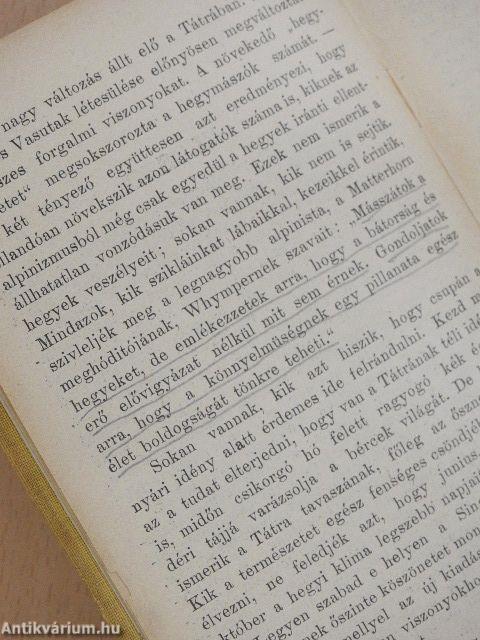 nagy változás állt elő a Tátrában.
s Vasutak létesülése előnyösen megváltozta
szes forgalmi viszonyokat. A növekedő „hegy-
etet“ megsokszorozta a hegymászók számát. —
két tényező együttesen azt eredményezi, hogy
llandóan növekszik azon látogatók száma is, kiknek az
alpinizmusból még csak egyedül a hegyek iránti ellent-
állhatatlan vonzódásuk van meg. Ezek nem ismerik a
hegyek veszélyeit; sokan vannak, kik nem is sejtik.
Mindazok, kik szikláinkat lábaikkal, kezeikkel érintik,
szivleljék meg a legnagyobb alpinista, a Matterhorn
meghóditójának, Whympernek szavait: „Másszátok a
hegyeket, de emlékezzetek arra, hogy a bátorság és
erő elővigyázat nélkül mit sem érnek. Gondoljatok
arra, hogy a könnyelműségnek egy pillanata egész
élet boldogságát tönkre teheti.“
Sokan vannak, kik azt hiszik, hogy csupán a
nyári idény alatt érdemes ide felrándulni. Kezd m
az a tudat elterjedni, hogy van a Tátrának téli idé
is, midőn csikorgó hó felett ragyogó kék é
déri tájjá varázsolja a bércek világát. De
ismerik a Tátra tavaszának, főleg az őszne
Kik a természetet egész fenséges csöndjé
élvezni, ne feledjék azt, hogy junius
október a hegyi klima legszebb napjai
Legyen szabad e helyen a Sin
nek őszinte köszönetet mon
mellyel az új kiadás
viszonyokho
Antikvárium.hu